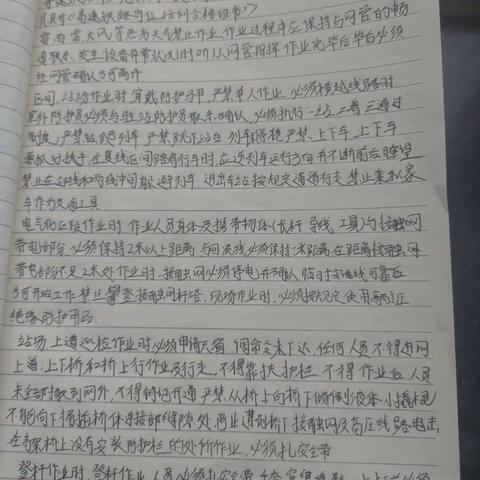 员具有《高速铁路岗位培训合格证书》
雷雨雪大风等恶劣天气禁止作业,作业过程中应保持与网管的畅
通联系,发生设备异常状况时听从网管指挥,作业完毕后必须
经网管确认方可离开
区间,站场作业时,穿戴防护马甲,严禁单人作业,必须横越线路时
室外防护员必须与驻站防护员联系确认,必须执行"一站二看三通过"
制度,严禁钻爬列车,严禁跳下站台,列车停稳,严禁上下车,上下车
要抓好扶手,在复线区间路肩行车时,应迎列车运行方向并不断前后瞭望
禁止在两线中间躲避列车,进出车站按规定通道行走,禁止乘私家
车作为交通工具
电气化区段作业时,作业人员身体及携带物体(长杆、导线、工具)与接触网
带电部分,必须保持2米以上距离,与回流线必须保持1米距离,在距离接触网
带电部分不足2米处作业时,接触网必须停电,并确认,临时接地线可靠后
方可开始工作,禁止攀登接触网杆塔,现场作业时,必须按规定使用高压
绝缘防护用品
站场上道巡检作业时必须申请天窗,调命令未下达,任何人员不得进网
上道,上下桥和桥上行作业及行走,不得靠扶护栏,不得作业后人员
未全部撤到网外,不得销记开通,严禁从桥上向桥下倾倒液体,
不能向下播撒桥体连接部缝隙处,防止进到桥下接触网及高压线路电击,
在高架桥上没有安装防护栏的处所作业,必须扎安全带
登杆作业时,登杆作业人员必须扎安全带